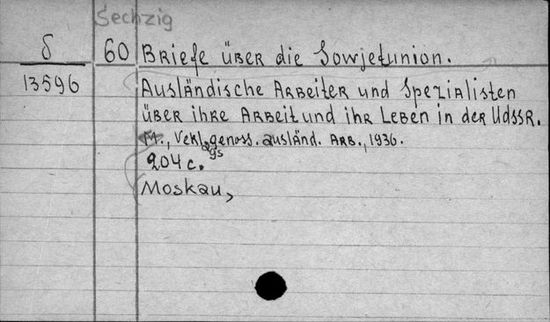 Sechzig
δ 60 Briefe über die Sowjetunion.
13596 Ausländische Arbeiter und Spezialisten
über ihre Arbeit und ihr Leben in der UdSSR.
M., Verlgsgenoss. ausländ. Arb., 1936.
204 c.
Moskau,